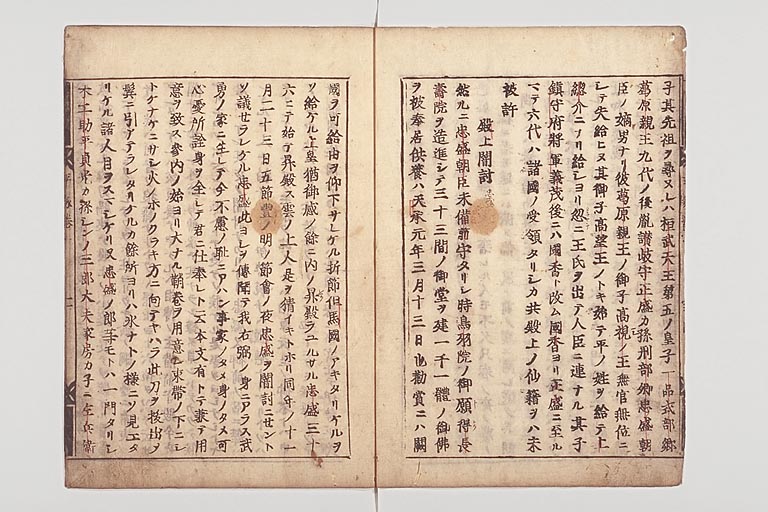 子其先祖ヲ尋ヌレハ桓武天王第五ノ皇子一品式部卿
葛原親王九代ノ後胤讃岐守正盛カ孫刑部卿忠盛朝
臣ノ嫡男ナリ彼葛原親王ノ御子高視ノ王無官無位ニ
シテ失給ヒヌ其御子高望王ノトキ始テ平ノ姓ヲ給テ上
総介ニナリ給シヨリ忽ニ王氏ヲ出テ人臣ニ連ナル其子
鎮守府将軍義茂後ニハ國香ト改ム國香ヨリ正盛ニ至ル
マテ六代ハ諸國ノ受領タリシカ共殿上ノ仙籍ヲハ未
被許
殿上闇討
然ルニ忠盛朝臣未備前守タリシ時鳥羽院ノ御願得長
壽院ヲ造進シテ三十三間ノ御堂ヲ建一千一體ノ御佛
ヲ被奉居供養ハ天承元年三月十三日也勸賞ニハ闕
國ヲ可給由ヲ仰下サレケル折節但馬國ノアキタリケルヲ
ソ給ケル上皇猶御感ノ餘ニ内ノ昇殿ヲユルサル忠盛三十
六ニテ始テ昇殿ス雲ノ上人是ヲ猜イキトホリ同年ノ十一
月二十三日五節豊ノ明ノ節會ノ夜忠盛ヲ闇討ニセント
ソ議セラレケル忠盛此ヨシヲ傳聞テ我右弼ノ身ニアラス武
勇ノ家ニ生レテ今不慮ノ恥ニアハン事家ノ為身ノ為心
憂所詮身ヲ全シテ君ニ仕奉レト云本文有トテ兼テ用
意ヲ致ス参内ノ始ヨリ大ナル鞘巻ヲ用意シ束帯ノ下ニシ
トケナケニサシ火ノホノクラキ方ニ向テヤハラ此刀ヲ抜出シ
鬢ニ引アテラレタリケルカ餘所ヨリハ氷ナトノ様ニソ見エタ
リケル諸人目ヲスマシケリ又忠盛ノ郎等モトハ一門タリシ
木工助平貞光カ孫シンノ三郎大夫家房カ子ニ左兵衛